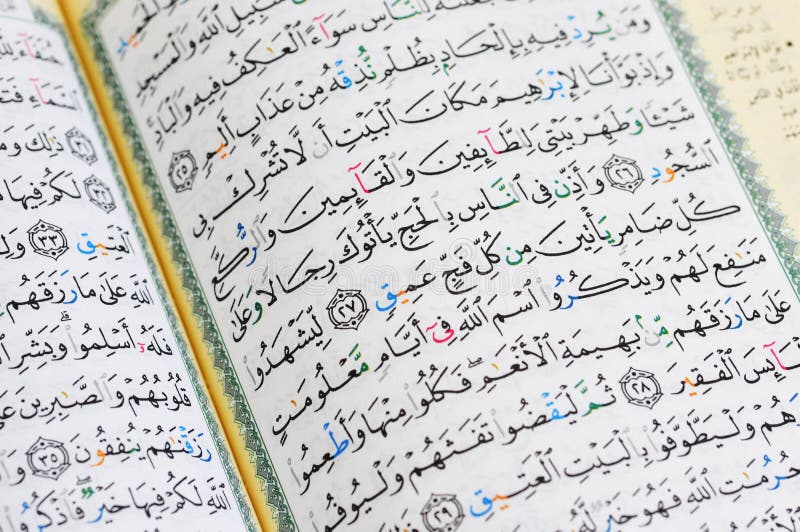 سَبِيلِ ٱللَّهِ وَٱلْمَسْجِدِ
لِلنَّاسِ سَوَآءً ٱلْعَـٰكِفُ فِيهِ وَٱلْبَادِ
وَمَن يُرِدْ فِيهِ بِإِلْحَادٍۭ بِظُلْمٍ نُّذِقْهُ مِنْ عَذَابٍ أَلِيمٍ ٢٥
وَإِذْ بَوَّأْنَا لِإِبْرَٰهِيمَ مَكَانَ ٱلْبَيْتِ أَن لَّا تُشْرِكْ بِى
شَيْـًٔا وَطَهِّرْ بَيْتِىَ لِلطَّآئِفِينَ وَٱلْقَآئِمِينَ وَٱلرُّكَّعِ
ٱلسُّجُودِ ٢٦ وَأَذِّن فِى ٱلنَّاسِ بِٱلْحَجِّ يَأْتُوكَ رِجَالًا وَعَلَىٰ
كُلِّ ضَامِرٍ يَأْتِينَ مِن كُلِّ فَجٍّ عَمِيقٍ ٢٧ لِّيَشْهَدُوا۟
مَنَـٰفِعَ لَهُمْ وَيَذْكُرُوا۟ ٱسْمَ ٱللَّهِ فِىٓ أَيَّامٍ مَّعْلُومَـٰتٍ
عَلَىٰ مَا رَزَقَهُم مِّنۢ بَهِيمَةِ ٱلْأَنْعَـٰمِ ۖ فَكُلُوا۟ مِنْهَا وَأَطْعِمُوا۟
ٱلْبَآئِسَ ٱلْفَقِيرَ ٢٨ ثُمَّ لْيَقْضُوا۟ تَفَثَهُمْ وَلْيُوفُوا۟
نُذُورَهُمْ وَلْيَطَّوَّفُوا۟ بِٱلْبَيْتِ ٱلْعَتِيقِ ٢٩
حُرُمَـٰتِ ٱللَّهِ فَهُوَ خَيْرٌ
حُنَفَآءَ لِلَّهِ
ٱلسَّمَآءِ
ذَٰلِكَ وَمَن
لَكُمْ فِيهَا
ٱلْعَتِيقِ ٣٣
ٱللَّهِ عَلَىٰ مَا رَزَقَهُم
فَلَهُۥٓ أَسْلِمُوا۟ ۗ وَبَشِّرِ
قُلُوبُهُمْ وَٱلصَّـٰبِرِينَ عَلَىٰ
رَزَقْنَـٰهُمْ يُنفِقُونَ ٣٥
ٱللَّهِ لَكُمْ فِيهَا خَيْرٌ ۖ فَٱذْكُرُوا۟